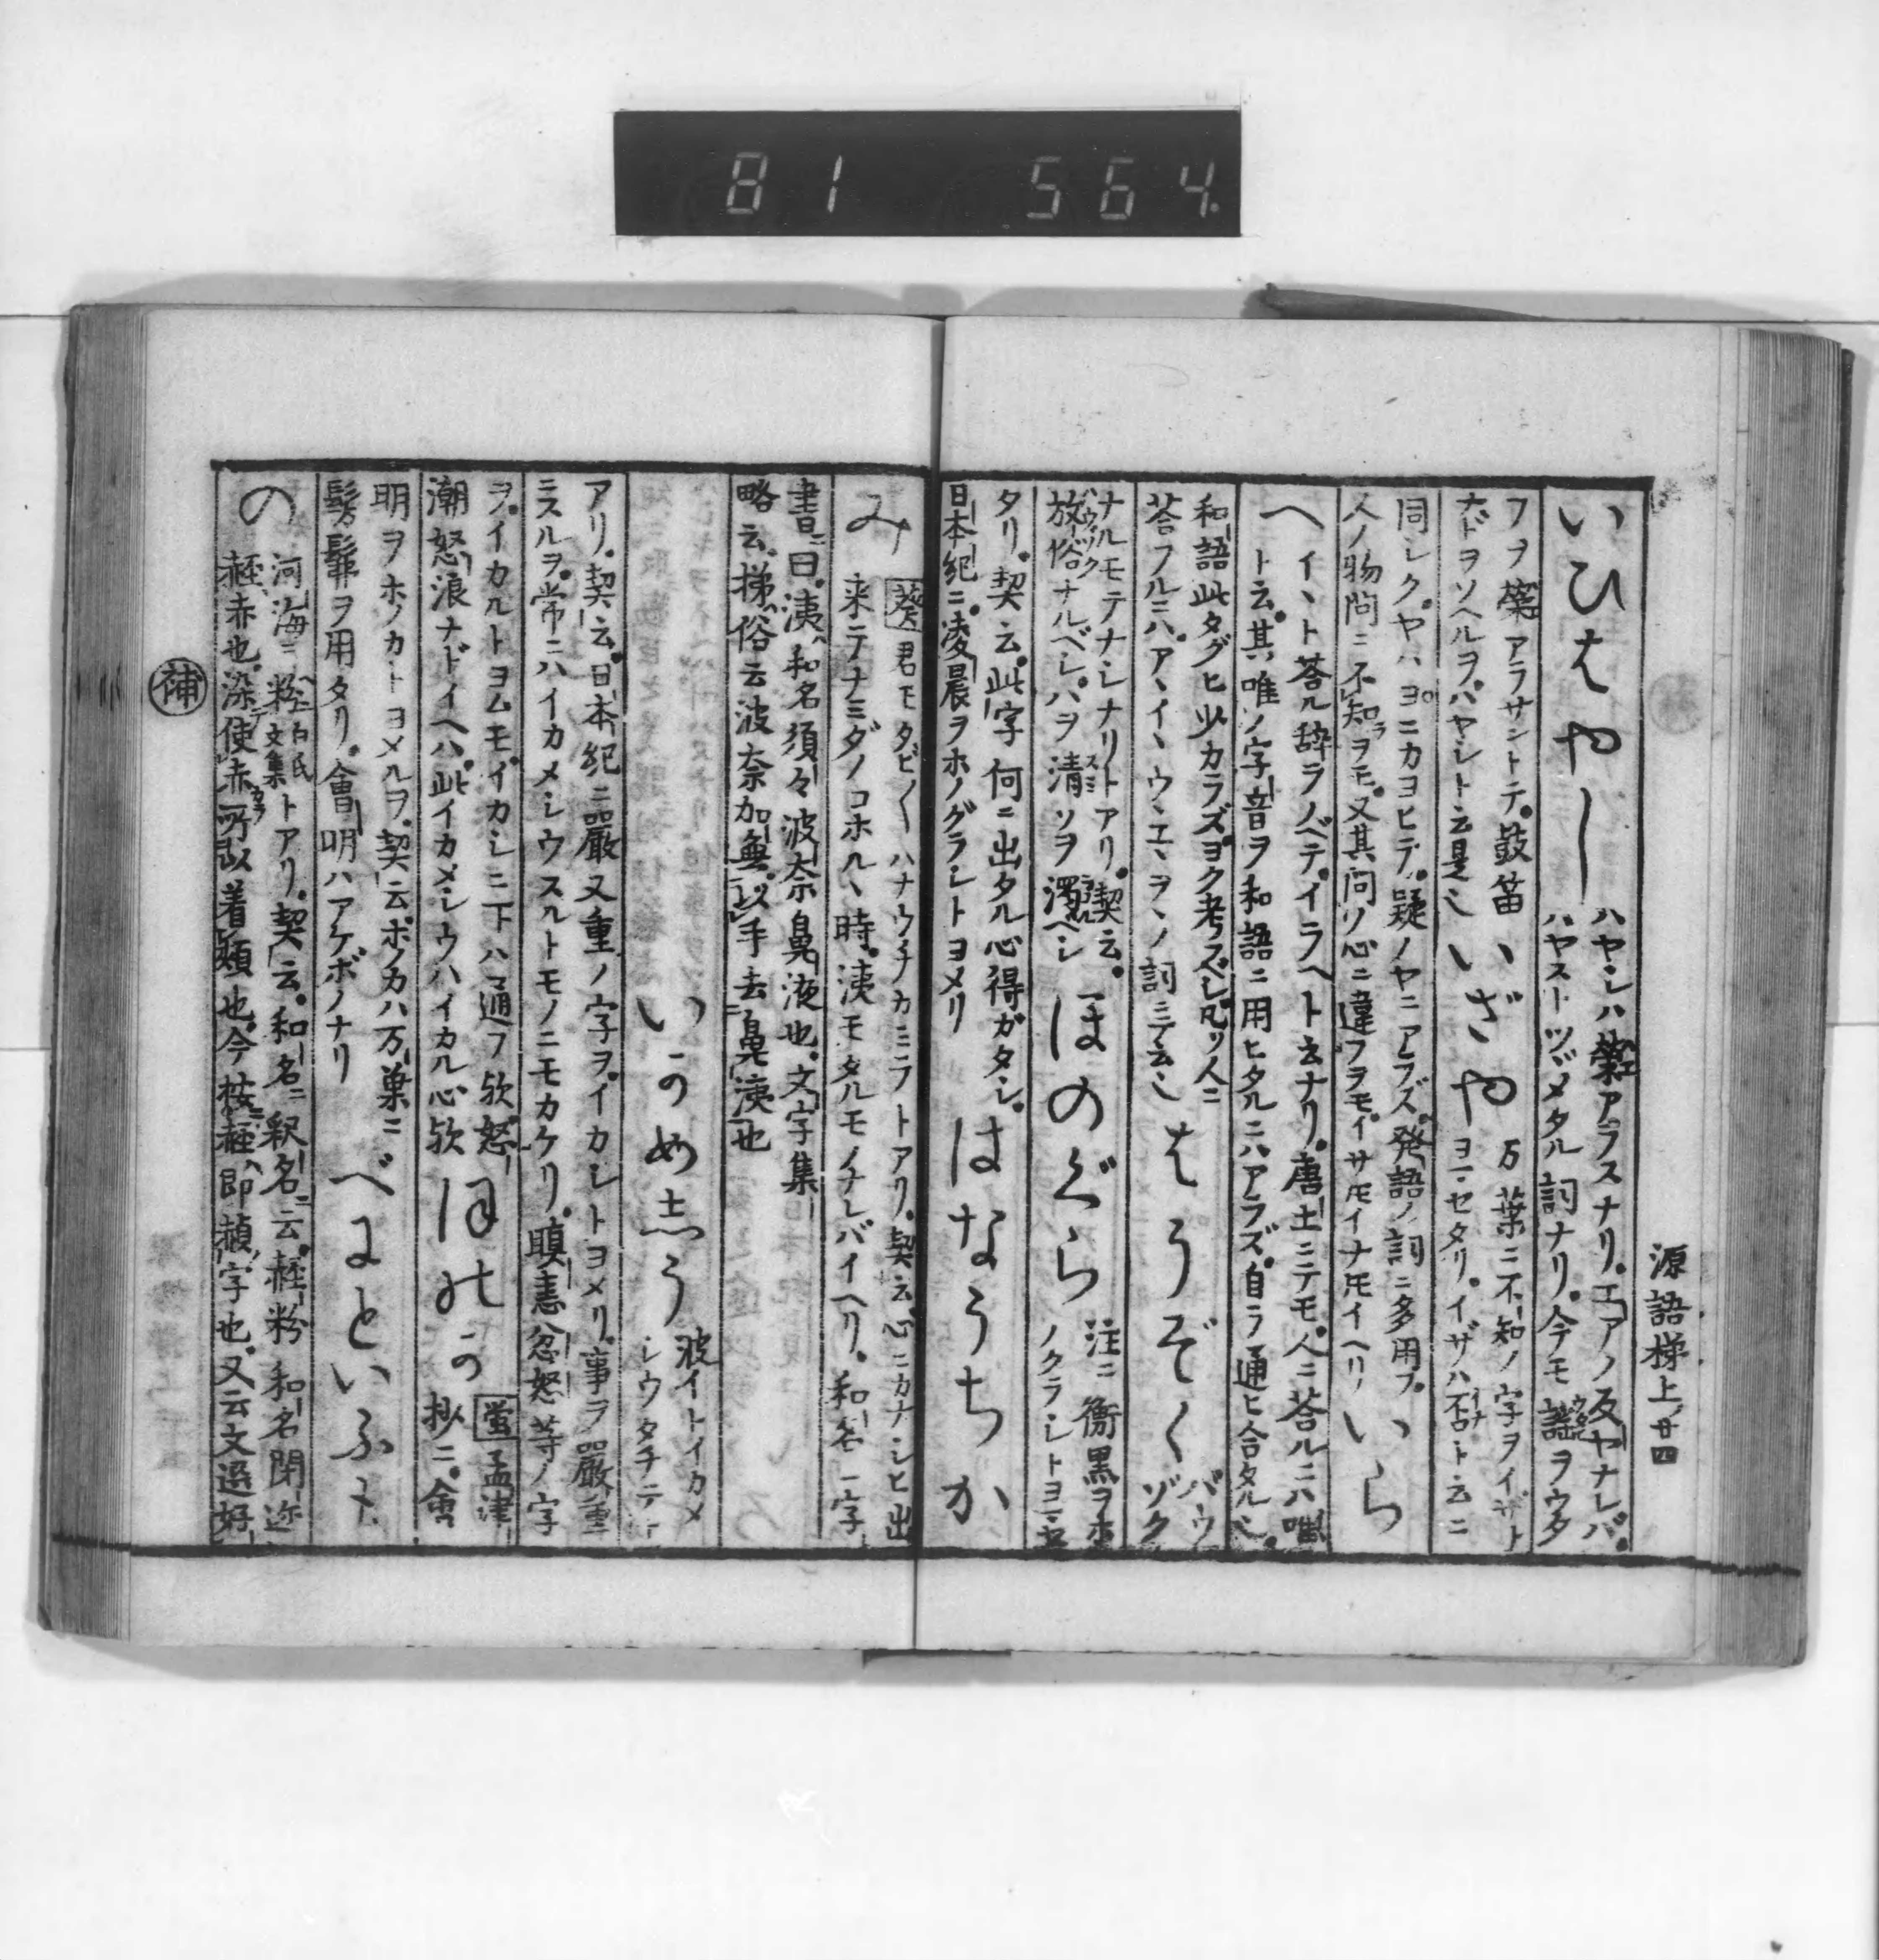 81 564.
源語梯上ノ廿四
いひはやし
ハヤシハ榮アラスナリ。エアノ反ヤナレバ。
ハヤストツヾメタル詞ナリ。今モ謡ヲウタ
フヲ榮アラサントテ。鼓笛
ナドヲソヘルヲ。ハヤシト云是也
いざや
万葉ニ不知ノ字ヲイザト
ヨマセタリ。イザハ否ト云ニ
同シク。ヤハヨニカヨヒテ。疑ノヤニアラズ。発語ノ詞ニ多用フ。
人ノ物問ニ不知ヲモ。又其問ソ心ニ違フヲモ。イサモイナモイヘリ
いら
へ
イヽト荅ル辞ヲノベテ。イラヘト云ナリ。唐土ニテモ。人ニ荅ルニハ唯
ト云。其唯ノ字音ヲ和語ニ用ヒタルニハアラズ。自ラ通ヒ合タル也。
和語此タグヒ少カラズ。ヨク考フベシ。凡ソ人ニ
荅フルニハ。アヽイヽウヽエヽヲヽノ詞ニテ云也
はうぞく
バウ
ゾク
ナルモテナシナリトアリ。契云。
放俗ナルベシ。ハヲ清ソヲ濁ベシ
ほのぐら
注ニ衡黒ヲホ
ノクラシトヨマセ
タリ。契云。此字何ニ出タル心得ガタシ。
日本紀ニ。凌晨ヲホノグラシトヨメリ
はなうちか
み
葵
君モタビ〳〵ハナウチカミテトアリ。契云。心ニカナシヒ出
来ニテナミダノコホルヽ時。洟モタルモノナレバイヘリ。和名一字
書ニ曰。洟ハ和名須々波奈鼻液也。文字集
略云。㨖ハ俗云波奈加無。以手去鼻洟也
いかめしう
波イトイカメ
シウタチテト
アリ。契云。日本紀ニ嚴又重ノ字ヲ。イカシトヨメリ。事ヲ嚴重
ニスルヲ。常ニハイカメシウスルトモノニモカケリ。瞋恚忿怒等ノ字
ヲ。イカルトヨムモ。イカシニ下ハ通フ欤。怒
潮怒浪ナドイヘハ。此イカメシウハイカル心欤
ほのか
螢
孟津
抄ニ。會
明ヲホノカトヨメルヲ。契云ホノカハ万葉ニ
髣髴ヲ用タリ。會明ハアケボノナリ
べにといふも
の
河海ニ粉白氏文集トアリ。契云。和名ニ釈名ニ云。䞓粉和名閇迩
䞓赤也。染使赤所以着頬也。今按ニ䞓ハ即頳ノ字也。又云文選好
補